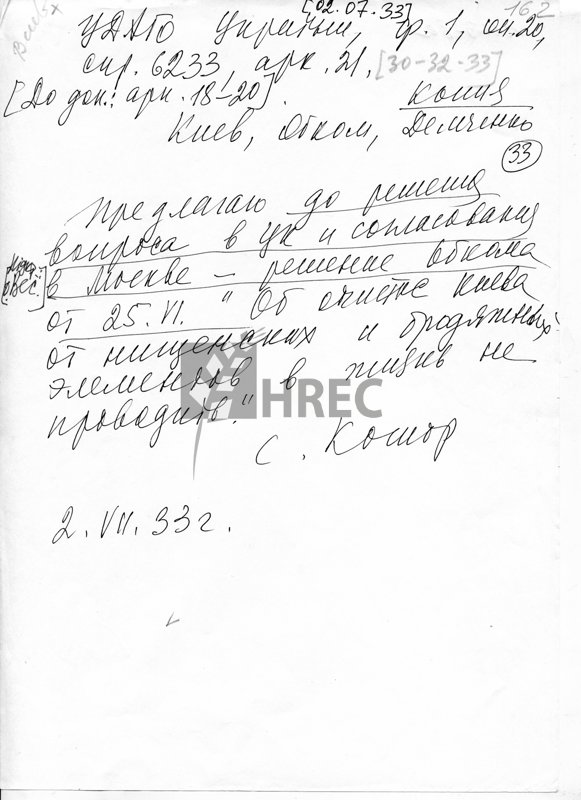 [02.07.33] 162
ЦДАГО України, ф. 1, оп. 20,
спр. 6233, арк. 21. [30-32-33]
[До док.: арк. 18-20].
копия
Киев, Обком, Демченко
33
Предлагаю до решения
вопроса в ЦК и согласования
в Москве – решение Обкома
от 25.VI. "Об очистке Киева
от нищенских и бродяжных
элементов в жизнь не
проводить."
HREC
С. Косиор
2. VII. 33 г.